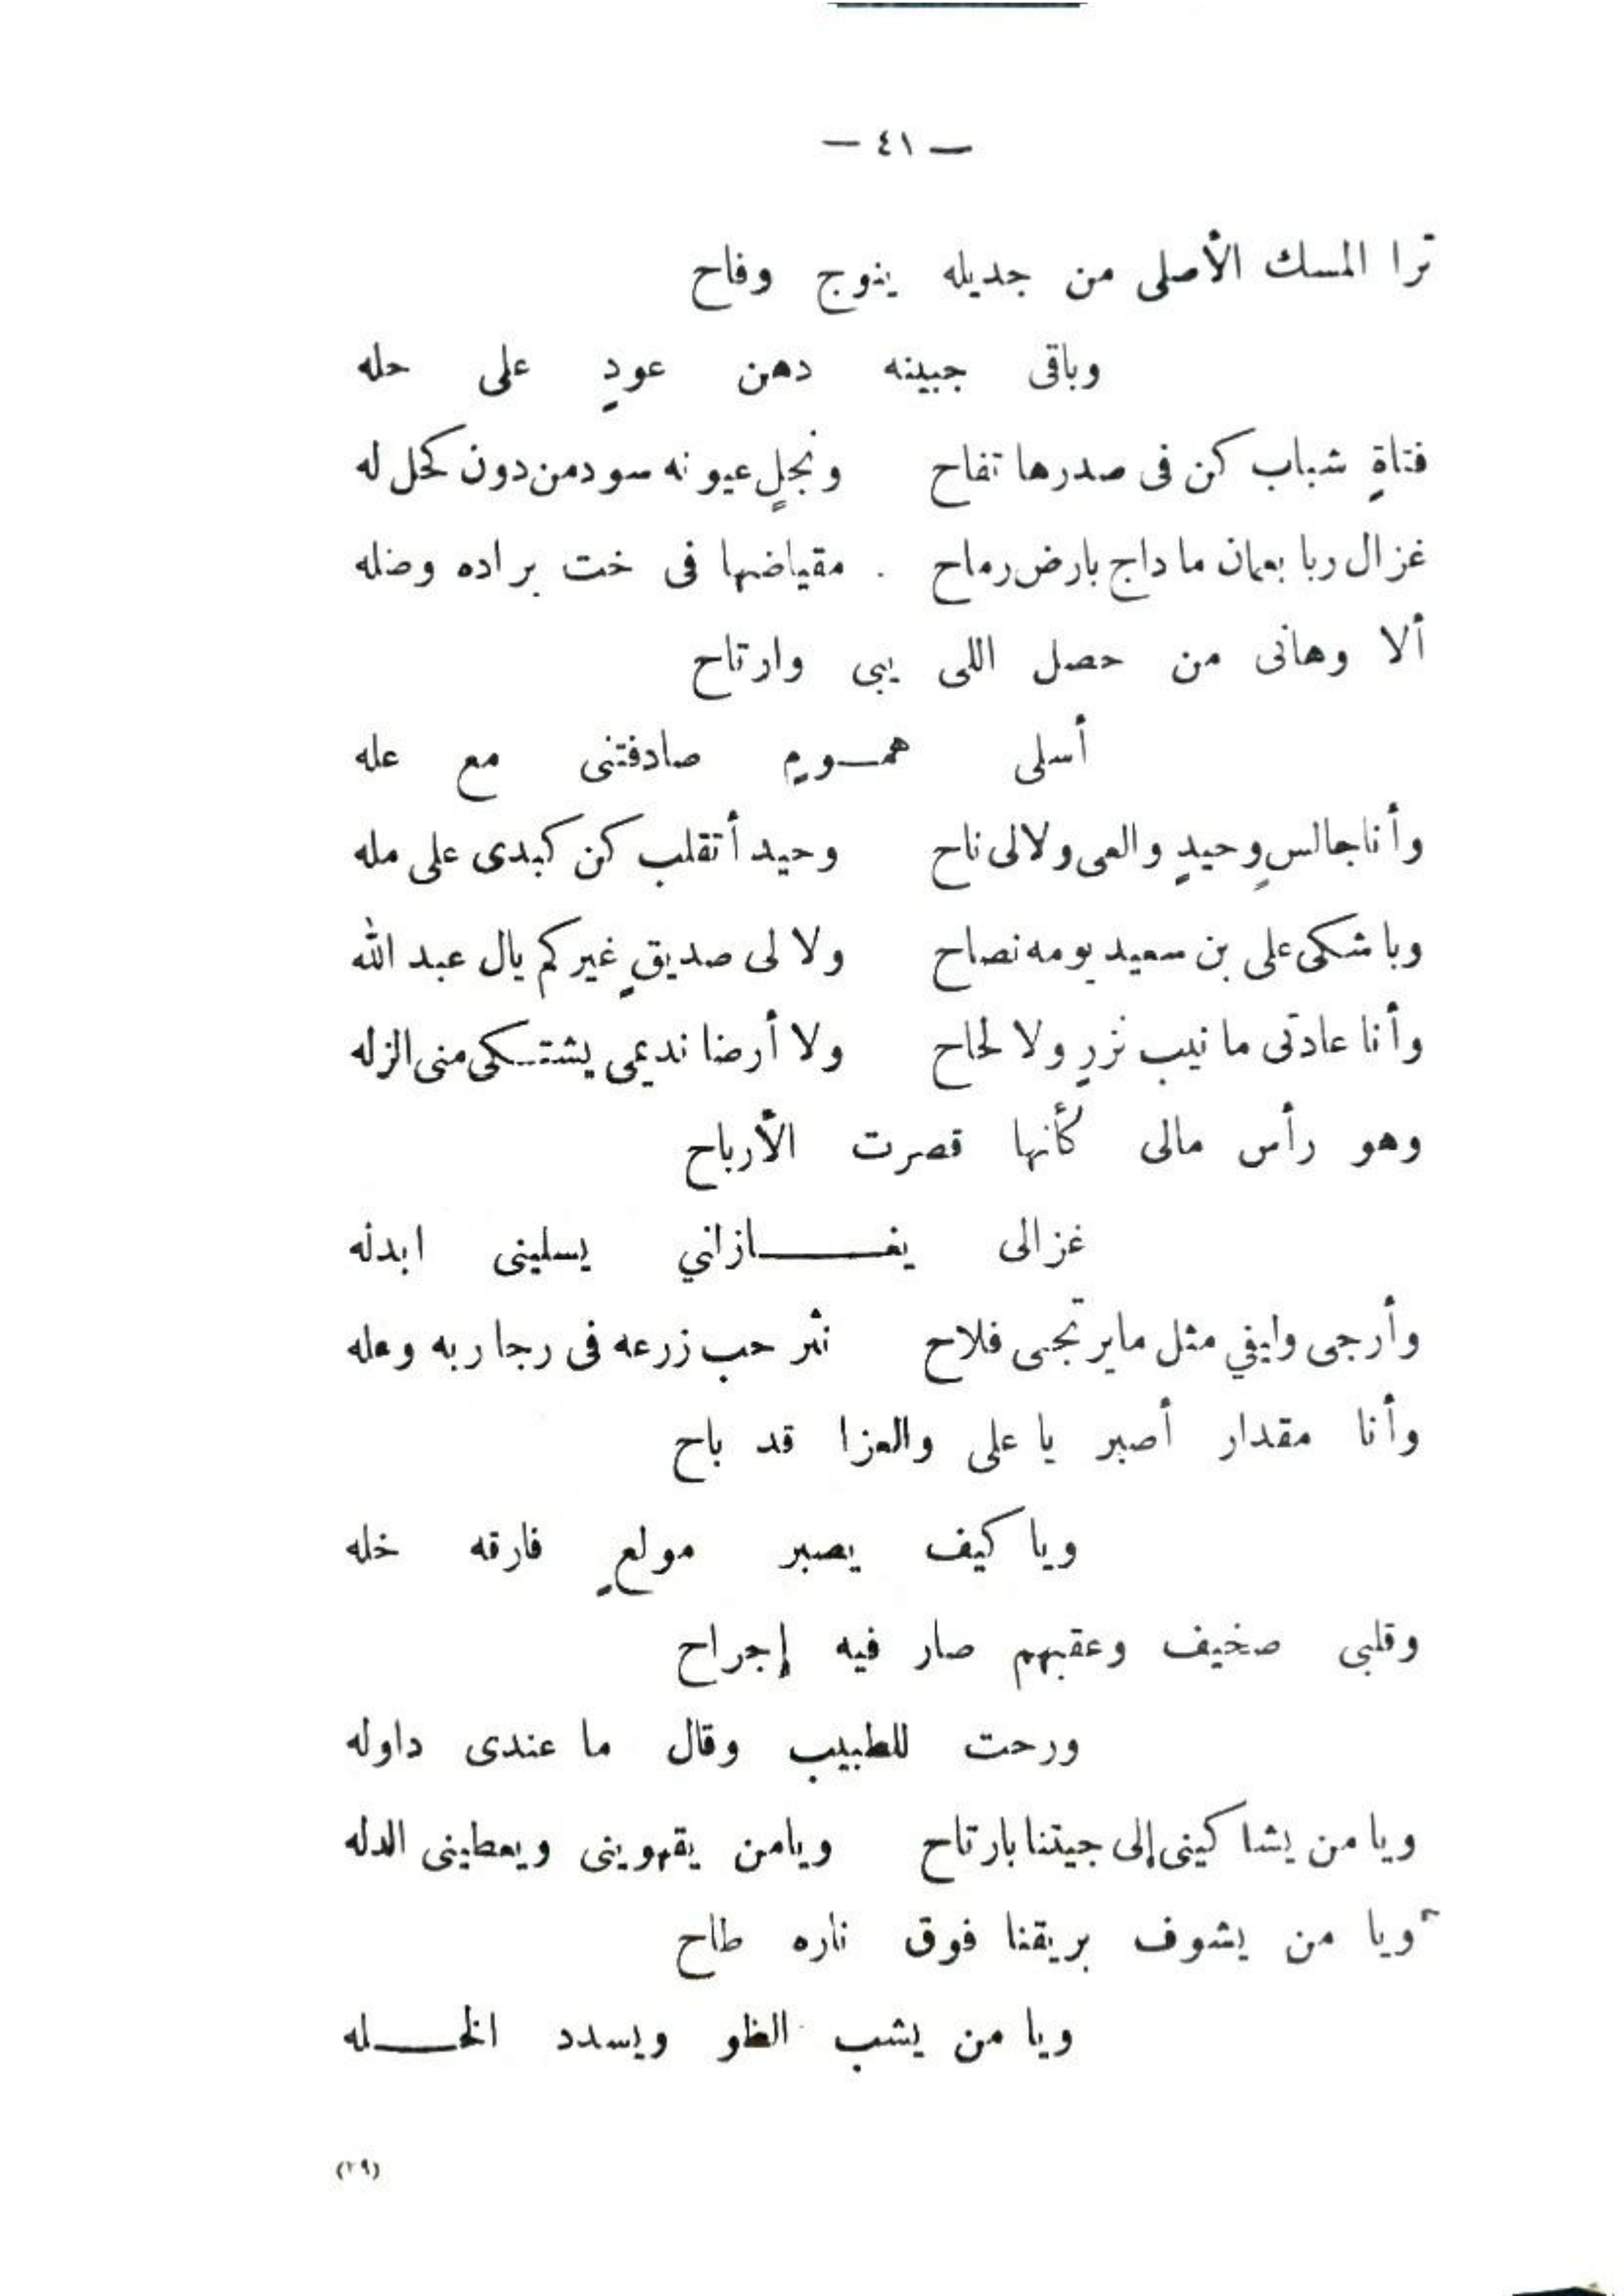 — ٤١ —
ترا المسك الأصلى من جديله ينوج وفاح
وباقى جبينه دهن عودٍ على حله
فتاةٍ شباب كن فى صدرها تفاح ونجلٍ عيونه سود من دون كحل له
غزال ربا بعمان ما داج بارض رماح . مقياضها فى خت براده وضله
ألا وهانى من حصل اللى يبى وارتاح
أسلى همــومٍ صادفتنى مع عله
وأنا جالسٍ وحيدٍ والعى ولا لى ناح وحيد أتقلب كن كبدى على مله
وبا شكى على بن سعيد يومه نصاح ولا لى صديقٍ غيركم يال عبد الله
وأنا عادتى ما نيب نزرٍ ولا لحاح ولا أرضا نديمى يشتــكى منى الزله
وهو رأس مالى كأنها قصرت الأرباح
غزالى يغــــازلني يسلينى ابدله
وأرجى وليفي مثل ما يرتجى فلاح نثر حب زرعه فى رجا ربه وعله
وأنا مقدار أصبر يا على والعزا قد باح
ويا كيف يصبر مولعٍ فارقه خله
وقلبى صخيف وعقبهم صار فيه إجراح
ورحت للطبيب وقال ما عندى داوله
ويا من يشاكينى إلى جيتنا بارتاح ويا من يقهوينى ويعطينى الدله
ويا من يشوف بريقنا فوق ناره طاح
ويا من يشب الظو ويسدد الخــله
(٢٩)